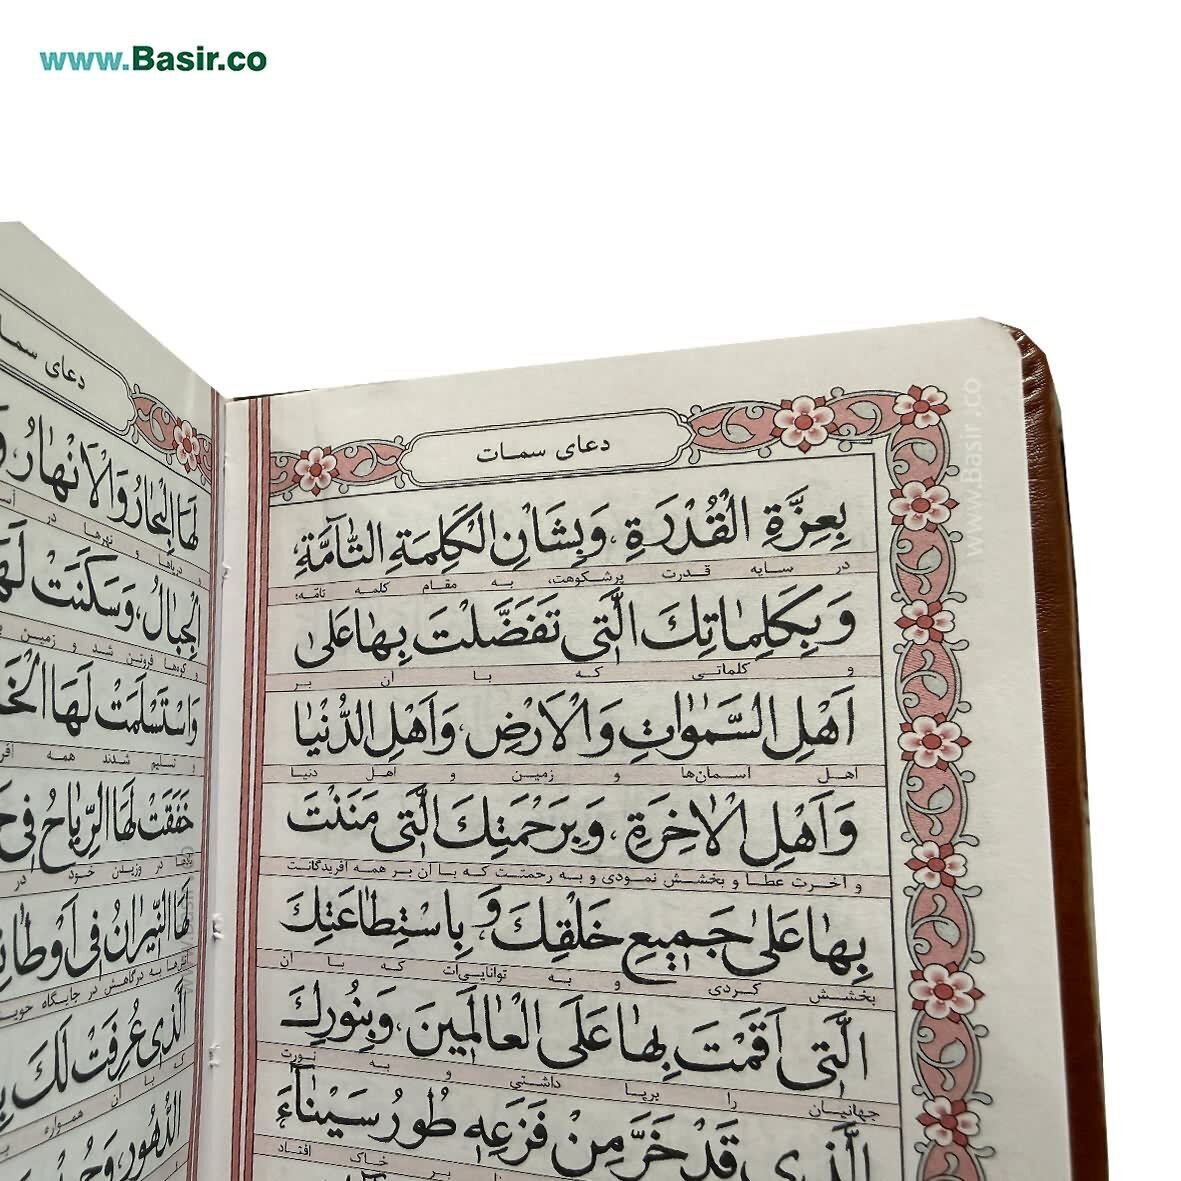 www.Basir.co
دعای سمات
بِعِزَّةِ الْقُدْرَةِ، وَبِشَانِ الْكَلِمَةِ التّٰامَّةِ،
در سایه قدرت پرشکوهت، به مقام کلمه تامّه؛
وَبِكَلِمٰاتِكَ الَّتى تَفَضَّلْتَ بِهٰا عَلىٰ
و کلماتی که با آن بر
اَهْلِ السَّمٰوٰاتِ وَالْاَرْضِ، وَاَهْلِ الدُّنْيٰا
اهل آسمان‌ها و زمین و اهل دنیا
وَاَهْلِ الْاٰخِرَةِ، وَبِرَحْمَتِكَ الَّتى مَنَنْتَ
و آخرت عطا و بخشش نمودی و به رحمتت که با آن بر همه آفریدگانت
بِهٰا عَلىٰ جَميعِ خَلْقِكَ، وَبِاسْتِطٰاعَتِكَ
بخشش کردی و به توانایی‌ات که با آن
الَّتى اَقَمْتَ بِهٰا عَلَى الْعٰالَمينَ، وَبِنُورِكَ
جهانیان را برپا داشتی و به نورت
الَّذى قَدْ خَرَّ مِنْ فَزَعِهِ طُورُ سَيْنٰاءَ
بر خاک افتاد
دعای
لَهَا الْبِحٰارُ وَالْاَنْهٰارُ
و دریاها و نهرها در
الْجِبٰالُ، وَسَكَنَتْ
و کوه‌ها فروتن شد و زمین
وَاسْتَسْلَمَتْ لَهَا
و تسلیم شدند همه
خَفَقَتْ لَهَا الرِّيٰاحُ فى
بادها در وزیدن خود در
لَهَا النّيرٰانُ فى
آتش‌ها به درگاهش در جایگاه
الَّذى عُرِفَتْ لَكَ
که با آن همواره
الدُّهُورِ،
www.Basir.co